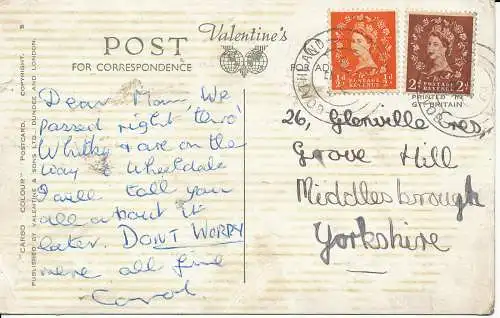 Valentine's
POST CARD
FOR CORRESPONDENCE
"CARGO COLOUR" POSTCARD. COPYRIGHT.
PUBLISHED BY VALENTINE & SONS LTD. DUNDEE AND LONDON.
FOR AD
½d POSTAGE REVENUE ½d
2d POSTAGE REVENUE 2d
PRINTED IN
GT BRITAIN
Dear Mam, We
passed right thro'
Whitby & are on the
way to Wheeldale
I will tell you
all about it
later. DON'T WORRY
were all fine
Carol
26, Glenville Cres,
Grove Hill
Middlesbrough
Yorkshire